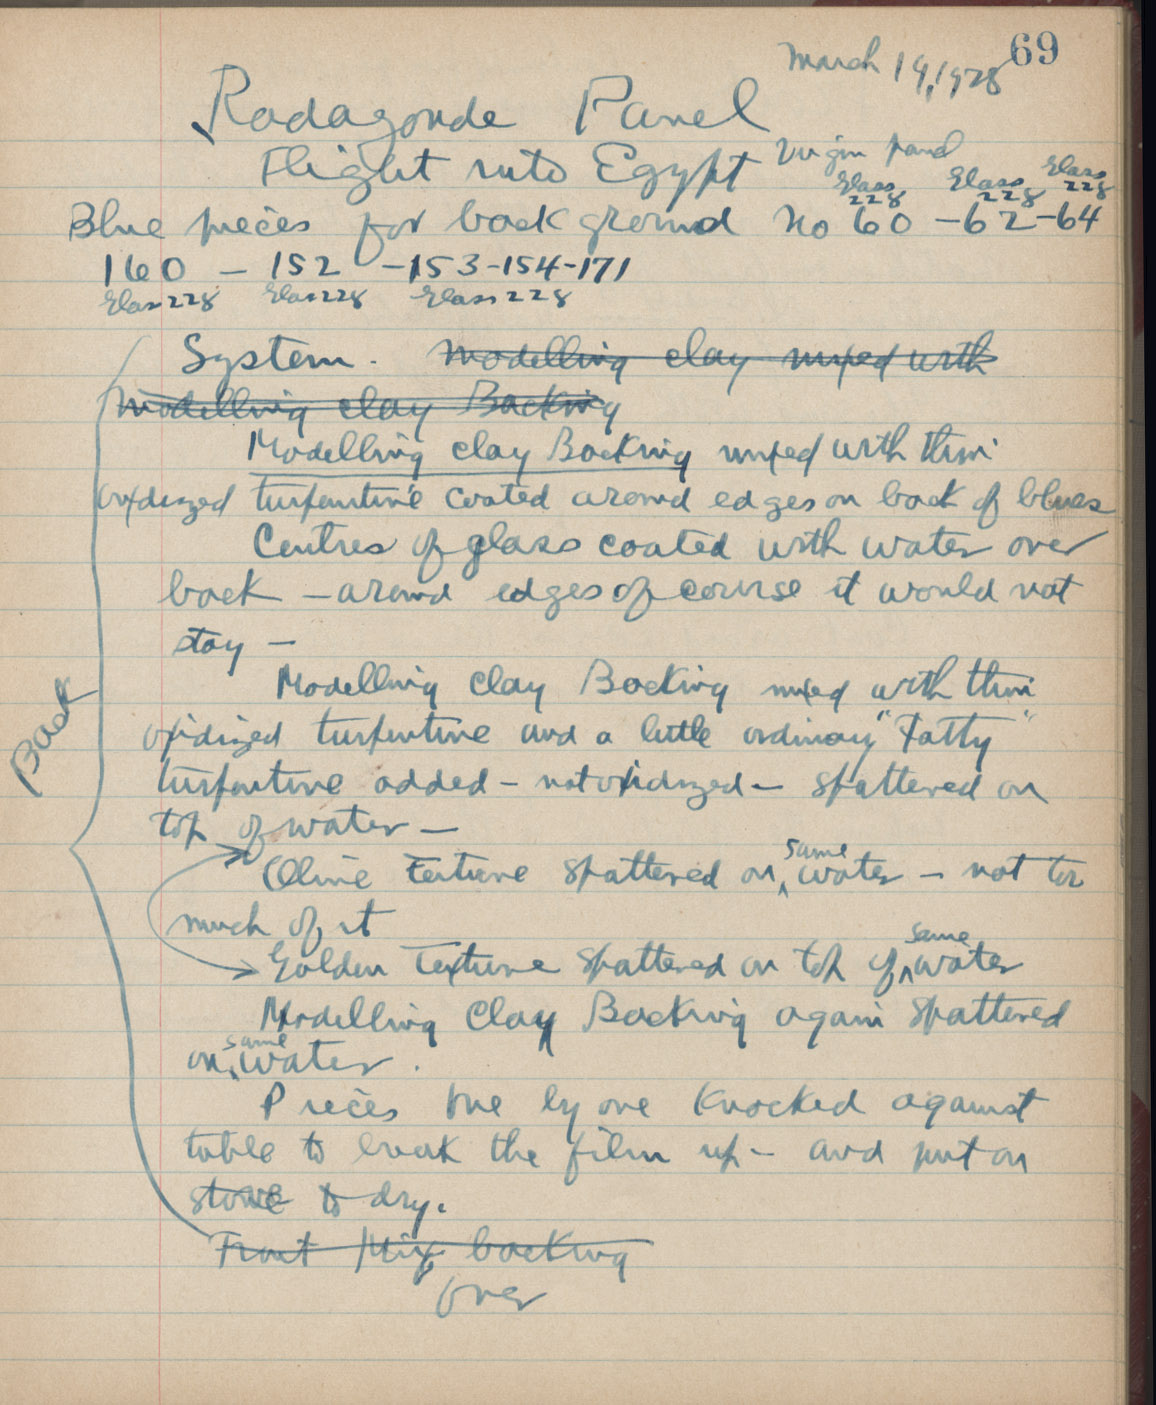 69
March 19, 1928
Radagonde Panel
Flight into Egypt Virgin panel
Glass 228 Glass 228 Glass 228
Blue pieces for back ground No 60 - 62 - 64
160 - 152 - 153 - 154 - 171
Glass 228 Glass 228 Glass 228
System. Modelling clay mixed with
Modelling clay Backing
Modelling clay Backing mixed with thin
oxidized turpentine coated around edges on back of blues
Centres of glass coated with water over
back - around edges of course it would not
stay -
Modelling Clay Backing mixed with thin
oxidized turpentine and a little ordinary "Fatty"
turpentine added - not oxidized - spattered on
top of water -
Olive Texture spattered on same water - not too
much of it
Golden Texture spattered on top of same water
Modelling Clay Backing again spattered
on same water.
Pieces one by one knocked against
table to break the film up - and put on
stove to dry.
Front Mix backing
over
Back